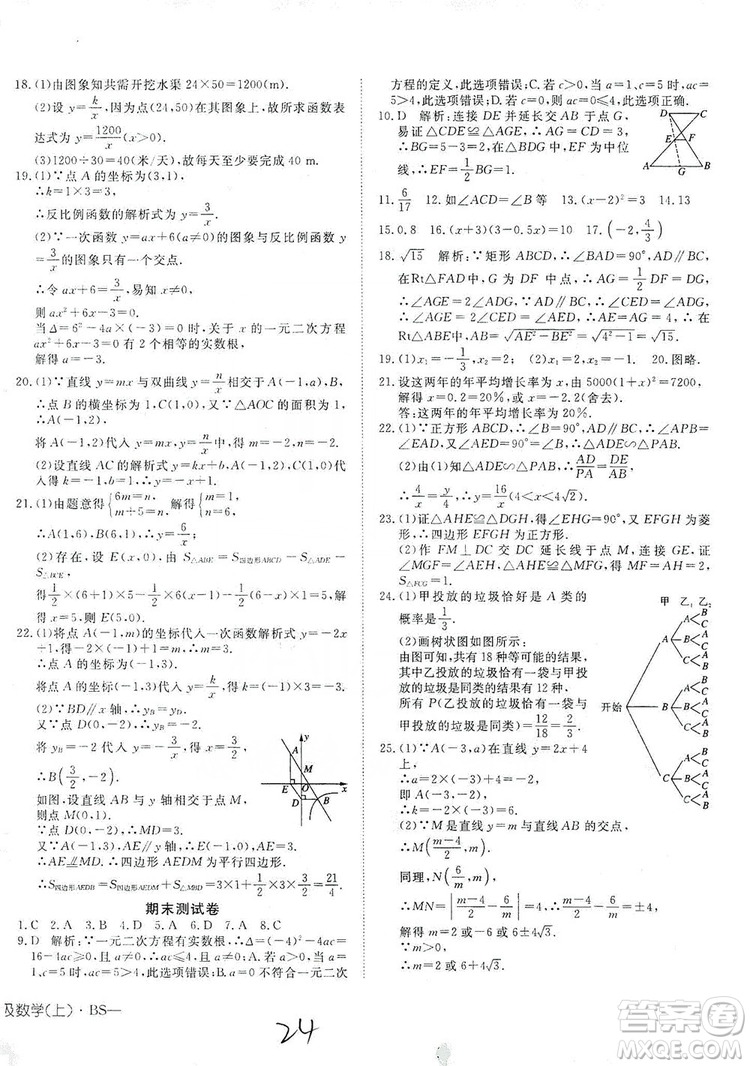 18. (1)由图象知共需开挖水渠 24×50=1200(m).
(2)设 y=k/x,因为点(24,50)在图象上,故所求函数表
达式为 y=1200/x(x>0).
(3)1200÷30=40(米/天),故每天至少要完成 40 m.
19. (1)∵点 A 的坐标为(3,1),
∴k=1×3=3,
∴反比例函数的解析式为 y=3/x.
(2)∵一次函数 y=ax+6(a≠0)的图象与反比例函数
y=3/x的图象只有一个交点.
令 ax+6=3/x,易知 x≠0,
则 ax²+6x-3=0.
当 Δ=6²-4a×(-3)=0 时,关于 x 的一元二次方程
ax²+6x-3=0 有 2 个相等的实数根,
解得 a=-3.
20. (1)∵直线 y=mx 与双曲线 y=n/x相交于 A(-1,a),
∴点 B 的横坐标为 1,∴C(1,0).又∵△AOC 的面积为 1,
∴A(-1,2),
将 A(-1,2)代入 y=mx,y=n/x中,得 m=-2,n=-2.
(2)设直线 AC 的解析式为 y=kx+b,将 A(-1,2),C(1,0)代
入得 k=-1,b=1,∴y=-x+1.
21. (1)由题意得{6m=n, m+5=n, 解得{m=1, n=6.
∴A(1,6),B(6,1),∴y=6/x.
(2)存在,设 E(x,0),由 S△ADE=S四边形ABCD-S△ADE-
S△BCE,
得 1/2×(6+1)×5-1/2(x-1)×6-1/2(6-x)×1=5,
解得 x=5,∴E(5,0).
22. (1)将点 A(-1,m)的坐标代入一次函数解析式 y=-2x
+1,则-2×(-1)+1=3=m,∴点 A 的坐标为(-1,3).
∴点 A(-1,3)在 y=k/x上,∴k=-1×3=-3.
(2)∵BD∥x 轴,∴点 B 的纵坐标与点 D 的纵坐标相同.
又∵D(0,-2),将 y=-2 代入 y=-3/x得 x=3/2,
∴B(3/2,-2).
如图,设直线 AB 与 y 轴交于点 M,
则 M(0,1).
∵点 D(0,-2),∴MD=3.
又∵A(-1,3),AE∥y 轴,∴E(-1,0),AE=3.
∴AE∥MD,∴四边形 AEDM 为平行四边形.
∴S四边形AEDB=S四边形AEDM+S△MDB=3×1+1/2×3/2×3=21/4
期末测试卷
1. C 2. A 3. B 4. D 5. A 6. D 7. A 8. C
9. D 解析:∵一元二次方程有实数根,∴(-4)²-4ac=
16-4ac≥0,且 a≠0,∴ac≤4,且 a≠0.A. 若 a>0,当 a=
1,c=5 时,ac=5>4,此选项错误;B. a=0 不符合一元二次
方程的定义,此选项错误;C. 若 c>0,当 a=1,c=5 时,ac=
5>4,此选项错误;D. 若 c=0,则 ac=0≤4,此选项正确.
10. D 解析:连接 DE 并延长交 AB 于点 G,
易证△CDE≌△AGE,∴AG=CD=2,
∴BG=5-2=3.在△BDG 中,EF 是中
位线,∴EF=1/2BG=1.5.
11. 6/17 12. 如∠ACD=∠B等 13. (x-2)²=3 14. 13
15. 0.8 16. (x+3)(3-0.5x)=10 17. (-2,4/3)
18. √15 解析:∵矩形 ABCD,∴∠BAD=90°,AD∥BC,
在Rt△FAD中,G 为 DF 中点,∴AG=1/2DF=DG=4.
∴∠AGE=2∠ADG.又∵AD∥BC,∴∠CED=∠ADG.
∵∠AED=2∠CED,∴∠AED=∠AGE,∴AE=AG=4,在
Rt△ABE中,AB=√(AE²-BE²)=√(4²-1)=√15.
19. (1)x₁=-1/3,x₂=2; (2)x₁=1,x₂=-4. 20. 图略.
21. 设这两年的年平均增长率为 x,由 5000(1+x)²=7200,
解得 x=0.2=20%,x=-2.2(舍去).
答:这两年的年平均增长率为 20%.
22. (1)∵正方形 ABCD,∴AD∥BC,∠ABP=90°,∴∠APB
=∠EAD,又∠AED=90°=∠B,∴△ADE∽△PAB.
(2)∵正方形 ABCD,∵△ADE∽△PAB,∴AD/PA=DE/AB,
∴4/x=y/4,∴y=16/x(4<x<4√2).
23. (1)证△AHE≌△DGH,得∠EHG=90°,又 EFGH 为菱
形,∴四边形 EFGH为正方形.
(2)作 FM⊥DC 交 DC 延长线于点 M,连接 GE,证
∠MGF=∠AEH,∴△AHE≌△MFG,∴FM=AH=2,∴
S△FCG=1.
24. (1)甲投放的垃圾恰好是 A 类的
概率是1/3.
(2)画树状图如图所示:
由图可知,共有 18 种等可能的结果,
其中乙投放的垃圾恰有一袋与甲投
放的垃圾是同类的结果有 12 种.
所有 P(乙投放的垃圾恰有一袋与
甲投放的垃圾是同类)=12/18=2/3.
25. (1)∵A(-3,a)在直线 y=2x+4
上,
∴a=2×(-3)+4=-2,
即 A(-3,-2),
∴k=-2×(-3)=6.
(2)∵M 是直线 y=m 与直线 AB 的交点,
∴M((m-4)/2,m).
同理,N(6/m,m)
∴MN=|(m-4)/2-6/m|=4,
∴(m-4)/2-6/m=4或(m-4)/2-6/m=-4.
∵m>0,
∴m=2 或 m=6+4√3.
级数学(上)·BS—
24
答案圈
MXQE.COM